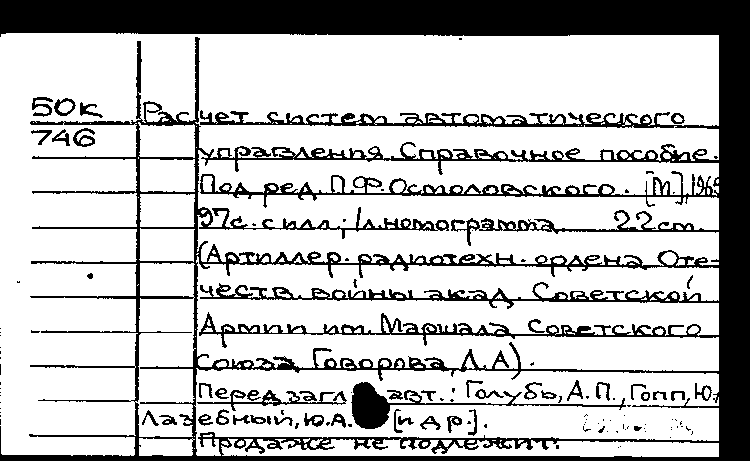 50к
746
Расчет систем автоматического
управления. Справочное пособие.
Под ред. П.Ф.Осмоловского. [М.], 1965
97с. с илл.; 1л.номограмма. 22 см.
(Артиллер. радиотехн. ордена Оте-
честв. войны акад. Советской
Армии им. Маршала Советского
Союза Говорова, Л.А).
Перед загл. авт.: Голубь, А.П., Гопп, Ю.
Лазебный, Ю.А. [и др.].
Продаже не подлежит.